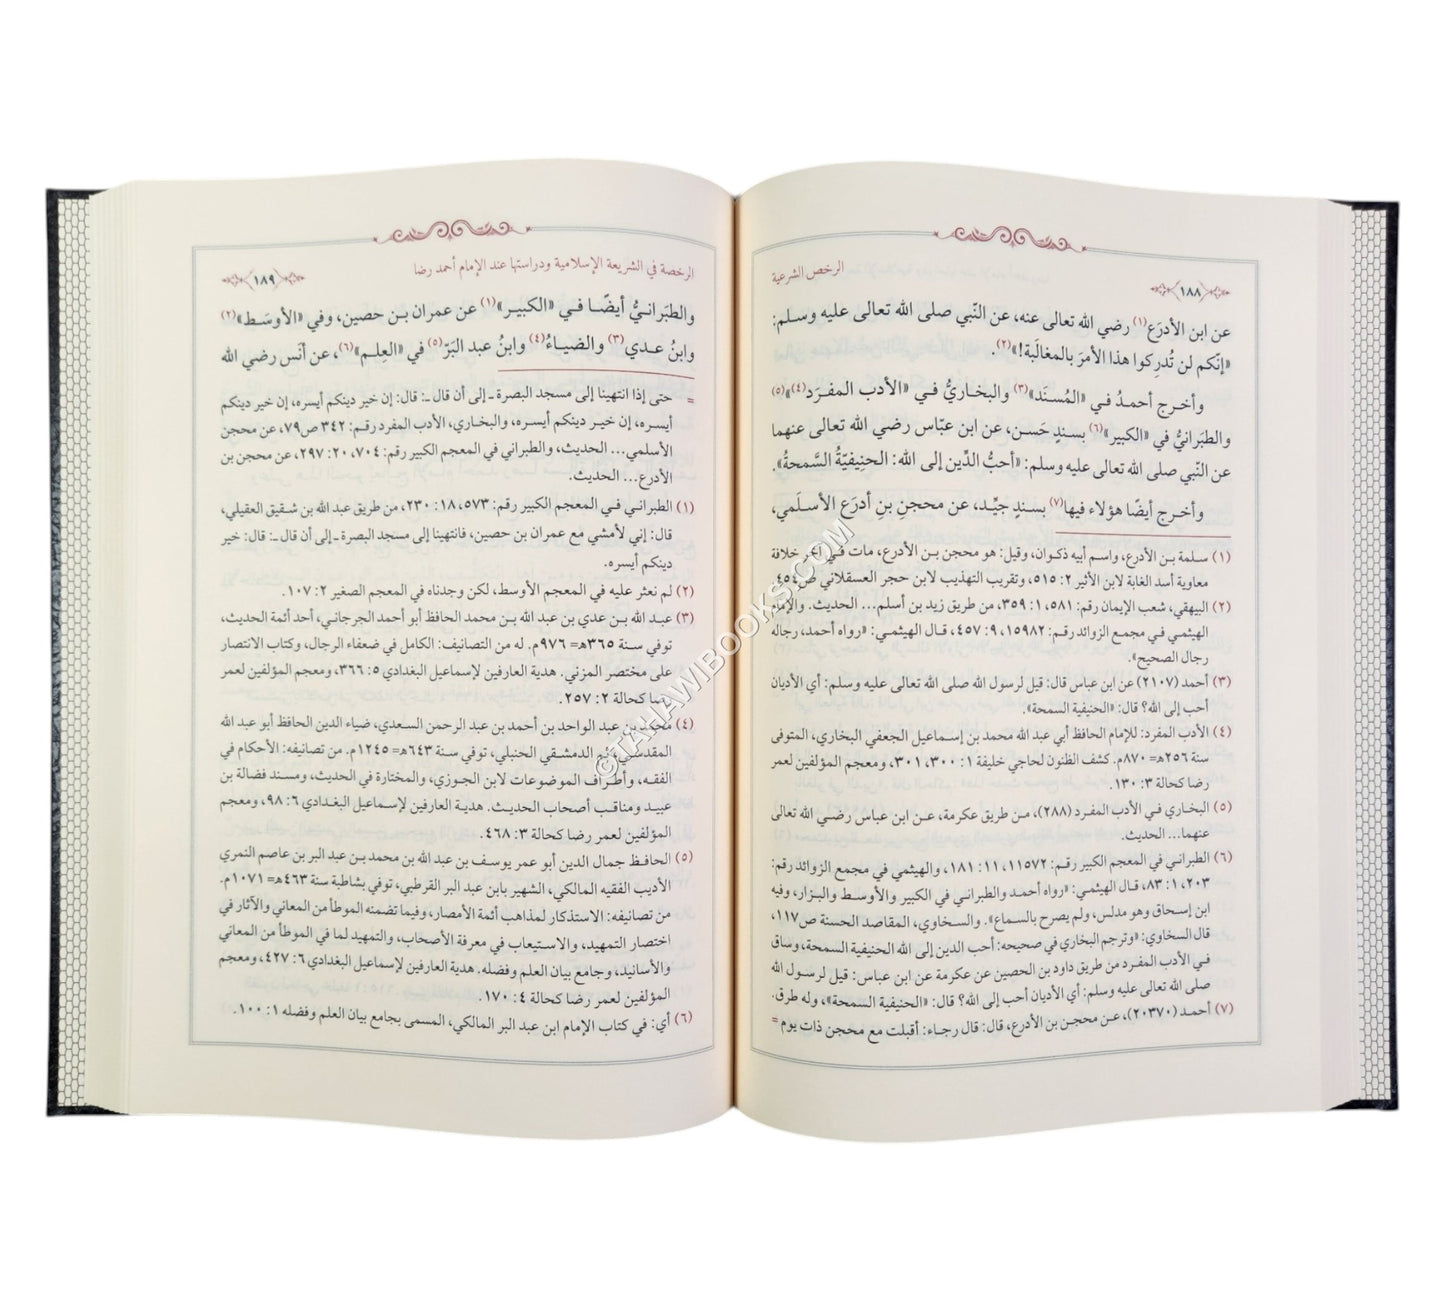 ١٨٨
الرخص الشرعية
عن ابن الأدرَع(١) رضي الله تعالى عنه، عن النّبي صلى الله تعالى عليه وسلم:
«إنّكم لن تُدرِكوا هذا الأمرَ بالمغالَبة!»(٢).
وأخرج أحمدُ في «المُسنَد»(٣) والبخاريُّ في «الأدب المفرَد(٤)»(٥)
والطبَرانيُّ في «الكبير»(٦) بسندٍ حَسن، عن ابن عبّاس رضي الله تعالى عنهما
عن النّبي صلى الله تعالى عليه وسلم: «أحبُّ الدِّين إلى الله: الحنِيفيّةُ السَّمحةُ».
وأخرج أيضًا هؤلاء فيها(٧) بسندٍ جيِّد، عن محجنِ بنِ أدرَع الأسلَمي،
(١) سلمة بن الأدرع، واسم أبيه ذكوان، وقيل: هو محجن بن الأدرع، مات في آخر خلافة
معاوية أسد الغابة لابن الأثير ٢: ٥١٥، وتقريب التهذيب لابن حجر العسقلاني ص٤٥٤.
(٢) البيهقي، شعب الإيمان رقم: ٥٨١، ١: ٣٥٩، من طريق زيد بن أسلم... الحديث. والإمام
الهيثمي في مجمع الزوائد رقم: ١٥٩٨٢، ٩: ٤٥٧، قال الهيثمي: «رواه أحمد، رجاله
رجال الصحيح».
(٣) أحمد (٢١٠٧) عن ابن عباس قال: قيل لرسول الله صلى الله تعالى عليه وسلم: أي الأديان
أحب إلى الله؟ قال: «الحنيفية السمحة».
(٤) الأدب المفرد: للإمام الحافظ أبي عبد الله محمد بن إسماعيل الجعفي البخاري، المتوفى
سنة ٢٥٦هـ= ٨٧٠م. كشف الظنون لحاجي خليفة ١: ٣٠٠، ٣٠١، ومعجم المؤلفين لعمر
رضا كحالة ٣: ١٣٠.
(٥) البخاري في الأدب المفرد (٢٨٨)، من طريق عكرمة، عن ابن عباس رضي الله تعالى
عنهما... الحديث.
(٦) الطبراني في المعجم الكبير رقم: ١١٥٧٢، ١١: ١٨١، والهيثمي في مجمع الزوائد رقم:
٢٠٣، ١: ٨٣، قال الهيثمي: «رواه أحمد والطبراني في الكبير والأوسط والبزار، وفيه
ابن إسحاق وهو مدلس، ولم يصرح بالسماع». والسخاوي، المقاصد الحسنة ص١١٧،
قال السخاوي: «وترجم البخاري في صحيحه: أحب الدين إلى الله الحنيفية السمحة، وساق
في الأدب المفرد من طريق داود بن الحصين عن عكرمة عن ابن عباس: قيل لرسول الله
صلى الله تعالى عليه وسلم: أي الأديان أحب إلى الله؟ قال: «الحنيفية السمحة»، وله طرق.
(٧) أحمد (٢٠٣٧٠)، عن محجن بن الأدرع، قال: قال رجاء: أقبلت مع محجن ذات يوم =
الرخصة في الشريعة الإسلامية ودراستها عند الإمام أحمد رضا
١٨٩
والطبَرانيُّ أيضًا في «الكبير»(١) عن عمران بن حصين، وفي «الأوسَط»(٢)
وابنُ عدي(٣) والضياءُ(٤) وابنُ عبد البَرّ(٥) في «العِلم»(٦)، عن أنَس رضي الله
= حتى إذا انتهينا إلى مسجد البصرة ـ إلى أن قال ـ: قال: إن خير دينكم أيسره، إن خير دينكم
أيسره، إن خير دينكم أيسره، والبخاري، الأدب المفرد رقم: ٣٤٢ ص٧٩، عن محجن
الأسلمي... الحديث، والطبراني في المعجم الكبير رقم: ٧٠٤، ٢٠: ٢٩٧، عن محجن بن
الأدرع... الحديث.
(١) الطبراني في المعجم الكبير رقم: ٥٧٣، ١٨: ٢٣٠، من طريق عبد الله بن شقيق العقيلي،
قال: إني لأمشي مع عمران بن حصين، فانتهينا إلى مسجد البصرة ـ إلى أن قال ـ: قال: خير
دينكم أيسره.
(٢) لم نعثر عليه في المعجم الأوسط، لكن وجدناه في المعجم الصغير ٢: ١٠٧.
(٣) عبد الله بن عدي بن عبد الله بن محمد الحافظ أبو أحمد الجرجاني، أحد أئمة الحديث،
توفي سنة ٣٦٥هـ= ٩٧٦م. له من التصانيف: الكامل في ضعفاء الرجال، وكتاب الانتصار
على مختصر المزني. هدية العارفين لإسماعيل البغدادي ٥: ٣٦٦، ومعجم المؤلفين لعمر
رضا كحالة ٢: ٢٥٧.
(٤) محمد بن عبد الواحد بن أحمد بن عبد الرحمن السعدي، ضياء الدين الحافظ أبو عبد الله
المقدسي، ثم الدمشقي الحنبلي، توفي سنة ٦٤٣هـ= ١٢٤٥م. من تصانيفه: الأحكام في
الفقه، وأطراف الموضوعات لابن الجوزي، والمختارة في الحديث، ومسند فضالة بن
عبيد ومناقب أصحاب الحديث. هدية العارفين لإسماعيل البغدادي ٦: ٩٨، ومعجم
المؤلفين لعمر رضا كحالة ٣: ٤٦٨.
(٥) الحافظ جمال الدين أبو عمر يوسف بن عبد الله بن محمد بن عبد البر بن عاصم النمري
الأديب الفقيه المالكي، الشهير بابن عبد البر القرطبي، توفي بشاطبة سنة ٤٦٣هـ= ١٠٧١م.
من تصانيفه: الاستذكار لمذاهب أئمة الأمصار، وفيما تضمنه الموطأ من المعاني والآثار في
اختصار التمهيد، والاستيعاب في معرفة الأصحاب، والتمهيد لما في الموطأ من المعاني
والأسانيد، وجامع بيان العلم وفضله. هدية العارفين لإسماعيل البغدادي ٦: ٤٢٧، ومعجم
المؤلفين لعمر رضا كحالة ٤: ١٧٠.
(٦) أي: في كتاب الإمام ابن عبد البر المالكي، المسمى بجامع بيان العلم وفضله ١: ١٠٠.
©TAHAWIBOOKS.COM